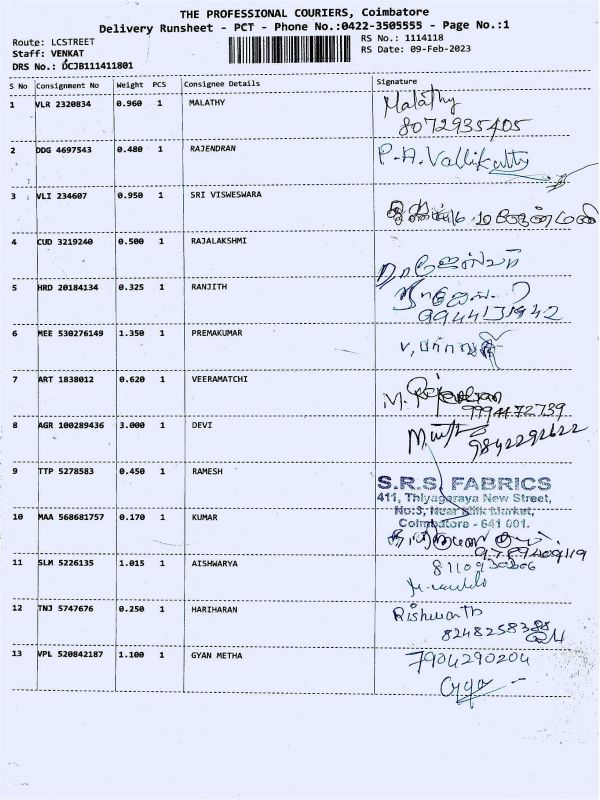 THE PROFESSIONAL COURIERS, Coimbatore
Delivery Runsheet - PCT - Phone No.:0422-3505555 - Page No.:1
Route: LCSTREET
RS No.: 1114118
Staff: VENKAT
RS Date: 09-Feb-2023
DRS No.: DCJB111411801
S No Consignment No Weight PCS Consignee Details Signature
1 VLR 2320834 0.960 1 MALATHY Malathy
8072935405
2 DDG 4697543 0.480 1 RAJENDRAN P.A. Vallikutty
3 VLI 234607 0.950 1 SRI VISWESWARA
4 CUD 3219240 0.500 1 RAJALAKSHMI
5 HRD 20184134 0.325 1 RANJITH
9944131942
6 MEE 530276149 1.350 1 PREMAKUMAR
7 ART 1838012 0.620 1 VEERAMATCHI M. Rajendran
9994472739
8 AGR 100289436 3.000 1 DEVI
9842292622
9 TTP 5278583 0.450 1 RAMESH S.R.S. FABRICS
411, Thiyagaraya New Street,
No:3, Near Milk Market,
Coimbatore - 641 001.
10 MAA 568681757 0.170 1 KUMAR
9789409119
11 SLM 5226135 1.015 1 AISHWARYA 8110930606
12 TNJ 5747676 0.250 1 HARIHARAN Rishwanth
13 VPL 520842187 1.100 1 GYAN METHA 7904290204